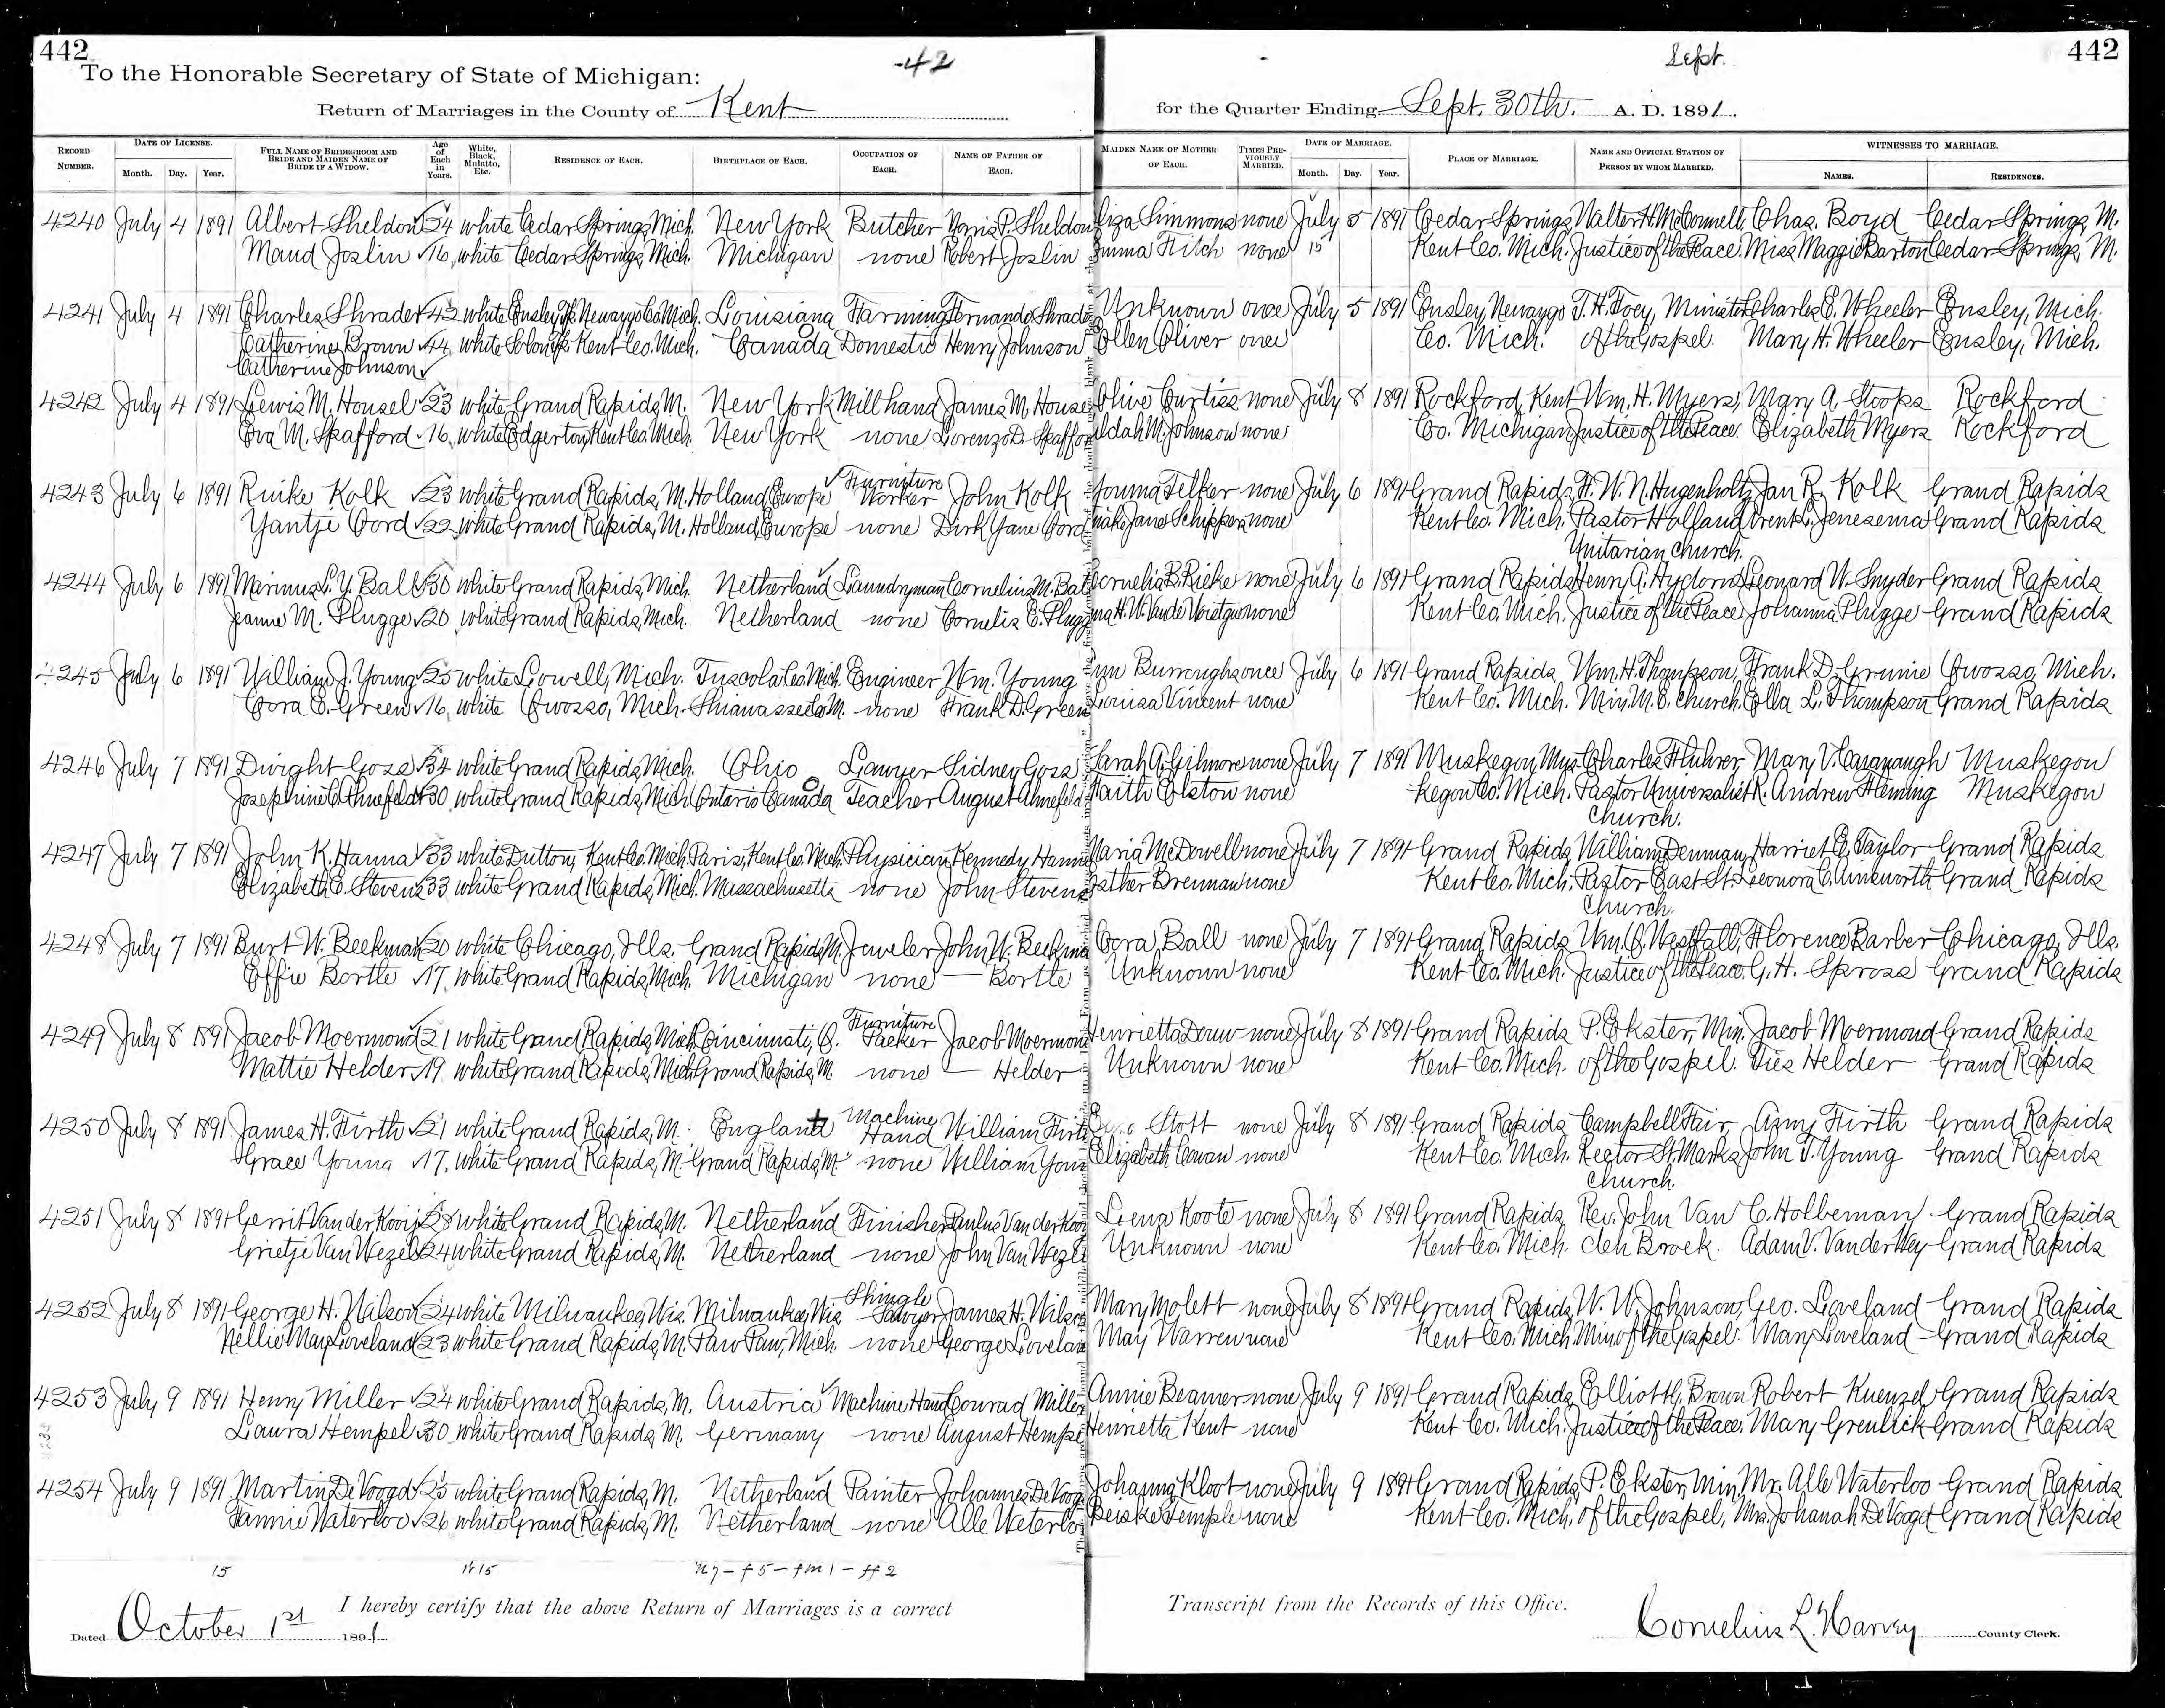 442
-42
Sept.
442
To the Honorable Secretary of State of Michigan:
Return of Marriages in the County of Kent for the Quarter Ending Sept. 30th. A. D. 1891.
RECORD NUMBER. DATE OF LICENSE. Month. Day. Year. FULL NAME OF BRIDEGROOM AND BRIDE AND MAIDEN NAME OF BRIDE IF A WIDOW. Age of Each in Years. White, Black, Mulatto, Etc. RESIDENCE OF EACH. BIRTHPLACE OF EACH. OCCUPATION OF EACH. NAME OF FATHER OF EACH. MAIDEN NAME OF MOTHER OF EACH. TIMES PREVIOUSLY MARRIED. DATE OF MARRIAGE. Month. Day. Year. PLACE OF MARRIAGE. NAME AND OFFICIAL STATION OF PERSON BY WHOM MARRIED. WITNESSES TO MARRIAGE. NAMES. RESIDENCES.
4240 July 4 1891 Albert Sheldon 24 white Cedar Springs, Mich. New York Butcher P. Sheldon Eliza Simmons none July 5 1891 Cedar Springs, Walter H. McConnell, Chas. Boyd Cedar Springs, M.
Maud Joslin 16 white Cedar Springs, Mich. Michigan none Robert Joslin Emma Fitch none 15 Kent Co. Mich. Justice of the Peace. Miss Maggie Barton Cedar Springs, M.
4241 July 4 1891 Charles Shrader 42 white Ensley Tp. Newaygo Co. Mich. Louisiana Farming Fernando Shrader Unknown once July 5 1891 Ensley, Newaygo T. H. Foey, Minister Charles E. Wheeler Ensley, Mich.
Catherine Brown 44 white Solon Tp. Kent Co. Mich. Canada Domestic Henry Johnson Ellen Oliver once Co. Mich. of the Gospel. Mary H. Wheeler Ensley, Mich.
Catherine Johnson
4242 July 4 1891 Lewis M. Housel 23 white Grand Rapids, M. New York Mill hand James M. Housel Olive Curtiss none July 8 1891 Rockford, Kent Wm. H. Myers, Mary A. Stoops Rockford
Eva M. Spafford 16 white Edgerton, Kent Co. Mich. New York none Lorenzo D. Spafford Huldah M. Johnson none Co. Michigan Justice of the Peace. Elizabeth Myers Rockford
4243 July 6 1891 Ruike Kolk 23 white Grand Rapids, M. Holland, Europe Furniture Worker John Kolk Felker none July 6 1891 Grand Rapids, F. W. N. Hugenholtz, Jan R. Kolk Grand Rapids
Yantje Oord 22 white Grand Rapids, M. Holland, Europe none Dirk Jane Oord Jane Schippers none Kent Co. Mich. Pastor Holland Jenesema Grand Rapids
Unitarian Church.
4244 July 6 1891 Marinus L. Y. Ball 30 white Grand Rapids, Mich. Netherland Laundryman Cornelius M. Ball Cornelia B. Rieke none July 6 1891 Grand Rapids Henry A. Hydorn Leonard W. Snyder Grand Rapids
Jeanne M. Plugge 20 white Grand Rapids, Mich. Netherland none Cornelis E. Plugge none Kent Co. Mich. Justice of the Peace Johanna Plugge Grand Rapids
4245 July 6 1891 William J. Young 25 white Lowell, Mich. Tuscola Co. Mich. Engineer Wm. Young Ann Burroughs once July 6 1891 Grand Rapids, Wm. H. Thompson, Frank D. Grunie Owosso, Mich.
Cora E. Green 16 white Owosso, Mich. Shiawassee Co. M. none Frank D. Green Louisa Vincent none Kent Co. Mich. Min. M. E. Church. Ella L. Thompson Grand Rapids
4246 July 7 1891 Dwight Goss 34 white Grand Rapids, Mich. Ohio Lawyer Sidney Goss Sarah A. Gilmore none July 7 1891 Muskegon, Mus- Charles Fluhrer Mary V. Cavanaugh Muskegon
Josephine C. Ahnefeldt 30 white Grand Rapids, Mich. Ontario Canada Teacher August Ahnefeldt Faith Elston none kegon Co. Mich. Pastor Universalist R. Andrew Fleming Muskegon
Church.
4247 July 7 1891 John K. Hanna 33 white Dutton, Kent Co. Mich. Paris, Kent Co. Mich. Physician Kennedy Hanna Maria McDowell none July 7 1891 Grand Rapids, William Denman, Harriet E. Taylor Grand Rapids
Elizabeth E. Stevens 33 white Grand Rapids, Mich. Massachusetts none John Stevens Esther Brennan none Kent Co. Mich. Pastor East St. Leonora C. Ainsworth Grand Rapids
Church.
4248 July 7 1891 Burt W. Beekman 20 white Chicago, Ills. Grand Rapids, M. Jeweler John W. Beekman Cora Ball none July 7 1891 Grand Rapids Wm. O. Westfall, Florence Barber Chicago, Ills.
Effie Bortle 17 white Grand Rapids, Mich. Michigan none — Bortle Unknown none Kent Co. Mich. Justice of the Peace. G. H. Spross Grand Rapids
4249 July 8 1891 Jacob Moermond 21 white Grand Rapids, Mich. Cincinnati, O. Furniture Packer Jacob Moermond Henrietta Douw none July 8 1891 Grand Rapids P. Ekster, Min. Jacob Moermond Grand Rapids
Mattie Helder 19 white Grand Rapids, Mich. Grand Rapids, M. none — Helder Unknown none Kent Co. Mich. of the Gospel. Ties Helder Grand Rapids
4250 July 8 1891 James H. Firth 21 white Grand Rapids, M. England Machine Hand William Firth Stott none July 8 1891 Grand Rapids Campbell Fair, Amy Firth Grand Rapids
Grace Young 17 white Grand Rapids, M. Grand Rapids, M. none William Young Elizabeth Cowan none Kent Co. Mich. Rector St. Marks John T. Young Grand Rapids
Church.
4251 July 8 1891 Gerrit Van der Kooij 28 white Grand Rapids, M. Netherland Finisher Paulus Van der Kooij Lena Koote none July 8 1891 Grand Rapids, Rev. John Van C. Holbeman Grand Rapids
Grietje Van Wezel 24 white Grand Rapids, M. Netherland none John Van Wezel Unknown none Kent Co. Mich. den Broek. Adam V. Vander Wey Grand Rapids
4252 July 8 1891 George H. Wilson 24 white Milwaukee, Wis. Milwaukee, Wis. Shingle Sawyer James H. Wilson Mary Molett none July 8 1891 Grand Rapids W. W. Johnson, Geo. Loveland Grand Rapids
Nellie May Loveland 23 white Grand Rapids, M. Paw Paw, Mich. none George Loveland May Warren none Kent Co. Mich. Min of the Gospel. Mary Loveland Grand Rapids
4253 July 9 1891 Henry Miller 24 white Grand Rapids, M. Austria Machine Hand Conrad Miller Annie Beamer none July 9 1891 Grand Rapids, Elliott G. Brown Robert Kuenzel Grand Rapids
Laura Hempel 30 white Grand Rapids, M. Germany none August Hempel Henrietta Kent none Kent Co. Mich. Justice of the Peace. Mary Greulick Grand Rapids
4254 July 9 1891 Martin De Voogd 25 white Grand Rapids, M. Netherland Painter Johannes De Voogd Johanna Kloot none July 9 1891 Grand Rapids, P. Ekster, Min. Mr. Alle Waterloo Grand Rapids
Fannie Waterloo 26 white Grand Rapids, M. Netherland none Alle Weterloo Beiske Temple none Kent Co. Mich. of the Gospel, Mrs. Johanah De Voogd Grand Rapids
15 W 15 n 7 - f 5 - fm 1 - ff 2
I hereby certify that the above Return of Marriages is a correct Transcript from the Records of this Office.
Dated October 1st 1891. Cornelius L. Harvey County Clerk.